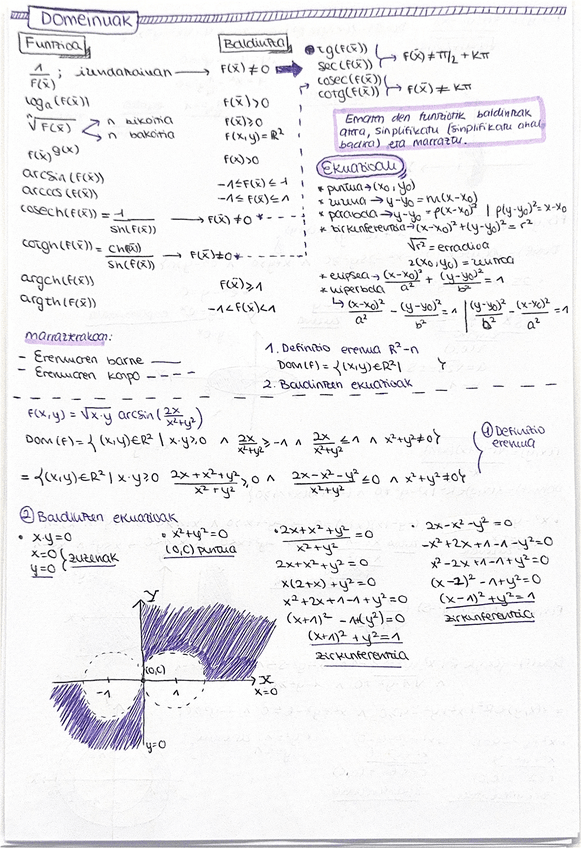 DOMEINUAK
Funtzioa
Baldintza
1/f(x̄) ; izendatzailean → f(x̄) ≠ 0
log_a(f(x̄)) f(x̄) > 0
ⁿ√f(x̄) n bikoitia f(x̄) ≥ 0
n bakoitia f(x,y) = ℝ²
f(x̄)^g(x̄) f(x) > 0
arcsin(f(x̄)) -1 ≤ f(x̄) ≤ 1
arccos(f(x̄)) -1 ≤ f(x̄) ≤ 1
cosech(f(x̄)) = 1/sh(f(x̄)) → f(x̄) ≠ 0 *
cotgh(f(x̄)) = ch(f(x̄))/sh(f(x̄)) → f(x̄) ≠ 0 *
argch(f(x̄)) f(x̄) ≥ 1
argth(f(x̄)) -1 < f(x̄) < 1
tg(f(x̄))
sec(f(x̄)) → f(x̄) ≠ π/2 + kπ
cosec(f(x̄))
cotg(f(x̄)) → f(x̄) ≠ kπ
Ematen den funtziotik baldintzak
atera, sinplifikatu (sinplifikatu ahal
bada) eta marraztu.
Ekuazioak
* puntua → (x₀, y₀)
* zuzena → y-y₀ = m(x-x₀)
* parabola → y-y₀ = p(x-x₀)² | p(y-y₀)² = x-x₀
* zirkunferentzia → (x-x₀)² + (y-y₀)² = r²
√r² = erradioa
z(x₀, y₀) = zentroa
* elipsea → (x-x₀)²/a² + (y-y₀)²/b² = 1
* hiperbola
↳ (x-x₀)²/a² - (y-y₀)²/b² = 1 | (y-y₀)²/b² - (x-x₀)²/a² = 1
marrazterakoan:
- Eremuaren barne ——
- Eremuaren kanpo - - - -
1. Definizio eremua ℝ²-n
Dom(f) = {(x,y)∈ℝ² | }
2. Baldintzen ekuazioak
f(x,y) = √x·y arcsin(2x/x²+y²)
Dom(f) = {(x,y)∈ℝ² | x·y ≥ 0 ∧ 2x/x²+y² ≥ -1 ∧ 2x/x²+y² ≤ 1 ∧ x²+y² ≠ 0}
① Definizio
eremua
= {(x,y)∈ℝ² | x·y ≥ 0 2x+x²+y²/x²+y² ≥ 0 ∧ 2x-x²-y²/x²+y² ≤ 0 ∧ x²+y² ≠ 0}
② Baldintzen ekuazioak
• x·y = 0
x=0
y=0
zuzenak
• x²+y² = 0
(0,0) puntua
• 2x+x²+y²/x²+y² = 0
2x+x²+y² = 0
x(2+x)+y² = 0
x²+2x+1-1+y² = 0
(x+1)²-1+(y²) = 0
(x+1)²+y² = 1
zirkunferentzia
• 2x-x²-y² = 0
-x²+2x+1-1-y² = 0
x²-2x+1-1+y² = 0
(x-2)²-1+y² = 0
(x-1)²+y² = 1
zirkunferentzia
y
(0,0)
-1
1
x
x=0
y=0